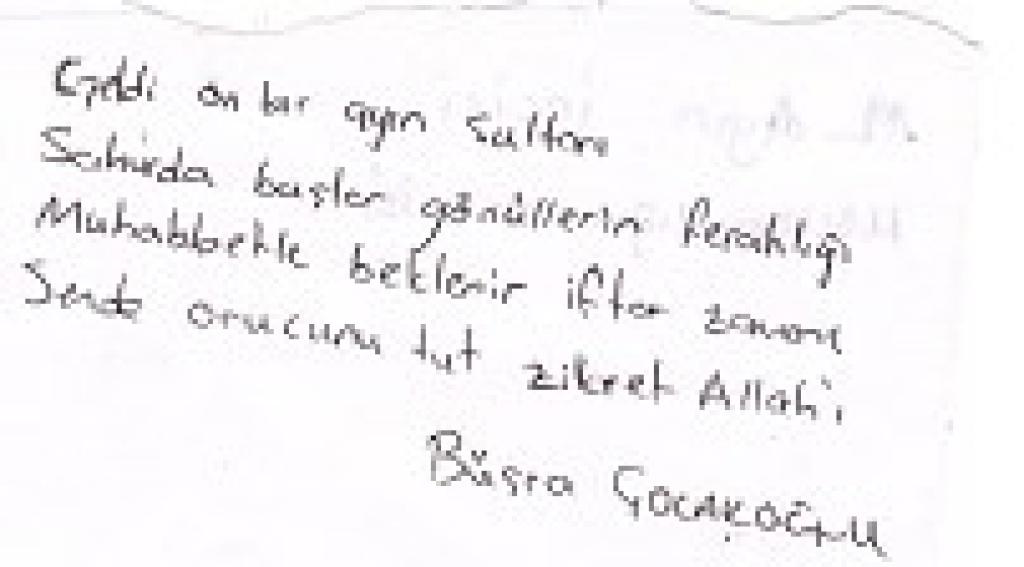 Geldi on bir ayın sultanı
Sahurda başlar gönüllerin ferahlığı
Muhabbetle beklenir iftar zamanı
Sende orucunu tut zikret Allah'ı
Büşra